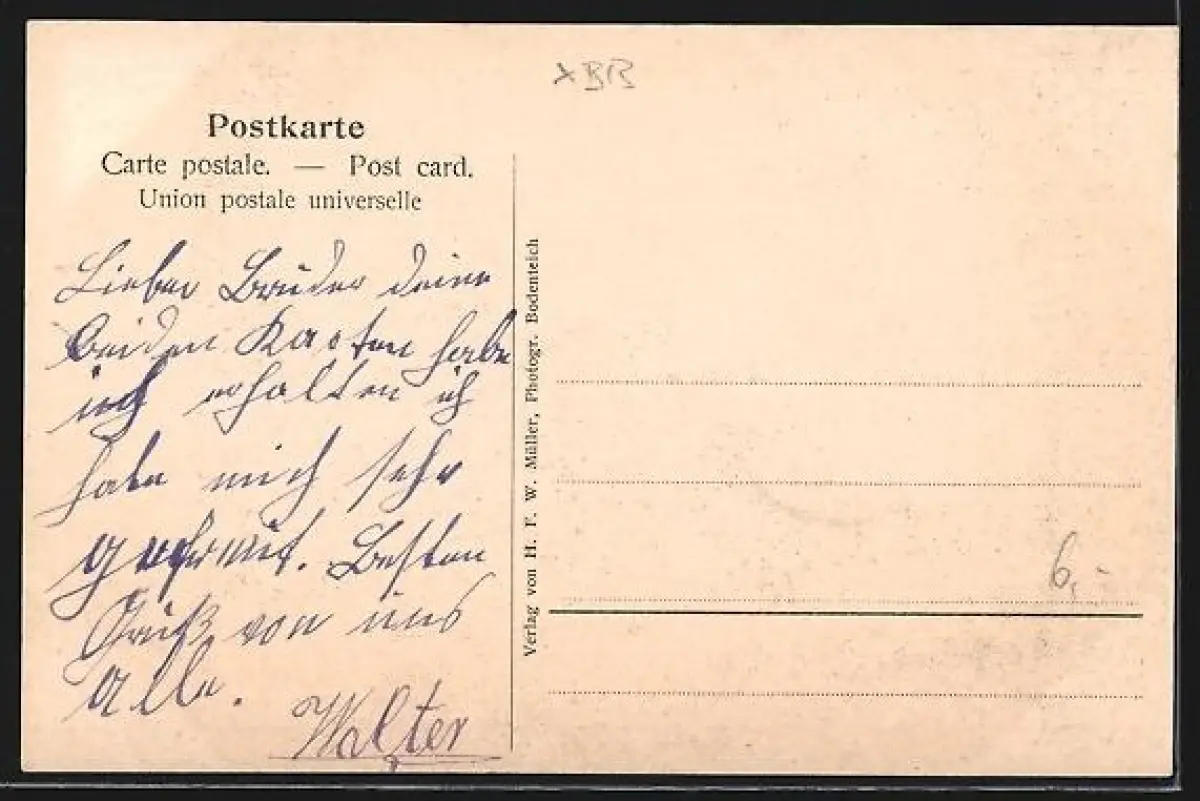 ×BR
Postkarte
Carte postale. — Post card.
Union postale universelle
Lieber Bruder deine
beiden Karten habe
ich erhalten ich
habe mich sehr
gefreut. Besten
Gruß von uns
alle.
Walter
Verlag von H. F. W. Müller, Photogr. Bodenteich
6,-